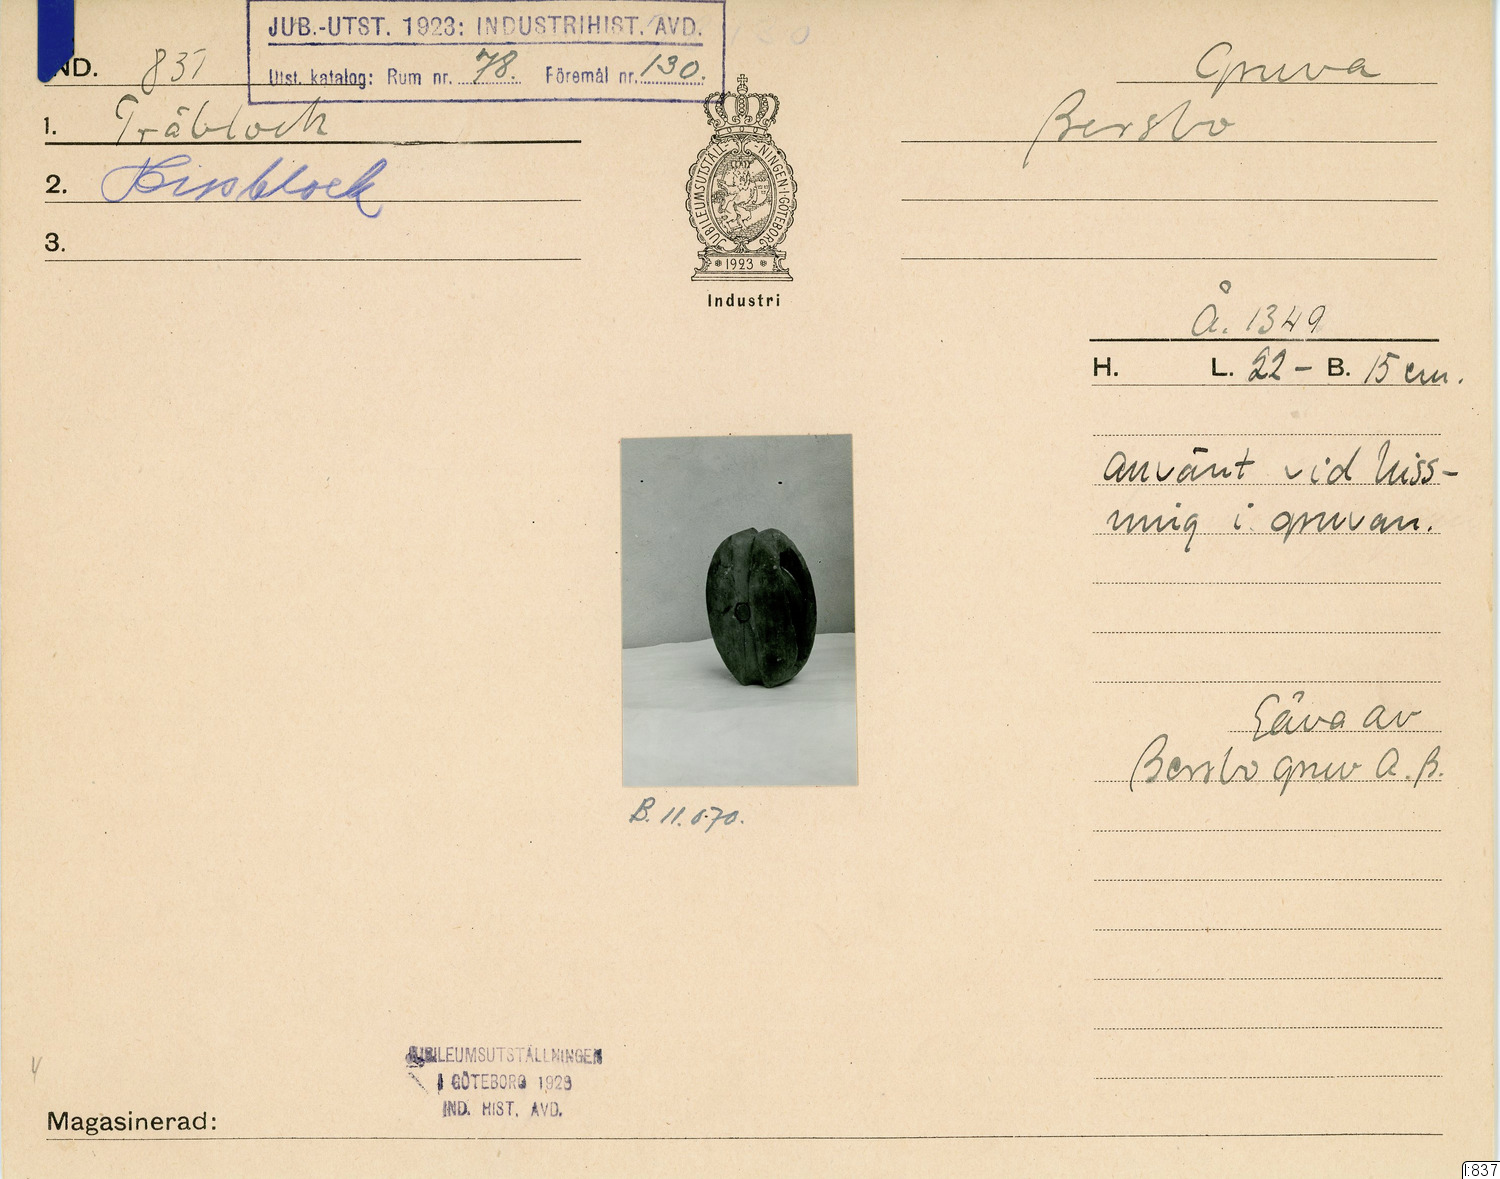 JUB.-UTST. 1923: INDUSTRIHIST. AVD.
Utst. katalog: Rum nr. 78. Föremål nr. 130.
IND. 837
1. Träblock
2. Hissblock
3.
Gruva
Bersbo
JUBILEUMSUTSTÄLLNINGEN I GÖTEBORG
1923
Industri
Å. 1349
H. L. 22 - B. 15 cm.
använt vid hiss-
ning i gruvan.
Gåva av
Bersbo gruv A.B.
B. 11.070.
JUBILEUMSUTSTÄLLNINGEN
I GÖTEBORG 1923
IND. HIST. AVD.
Magasinerad:
I:837